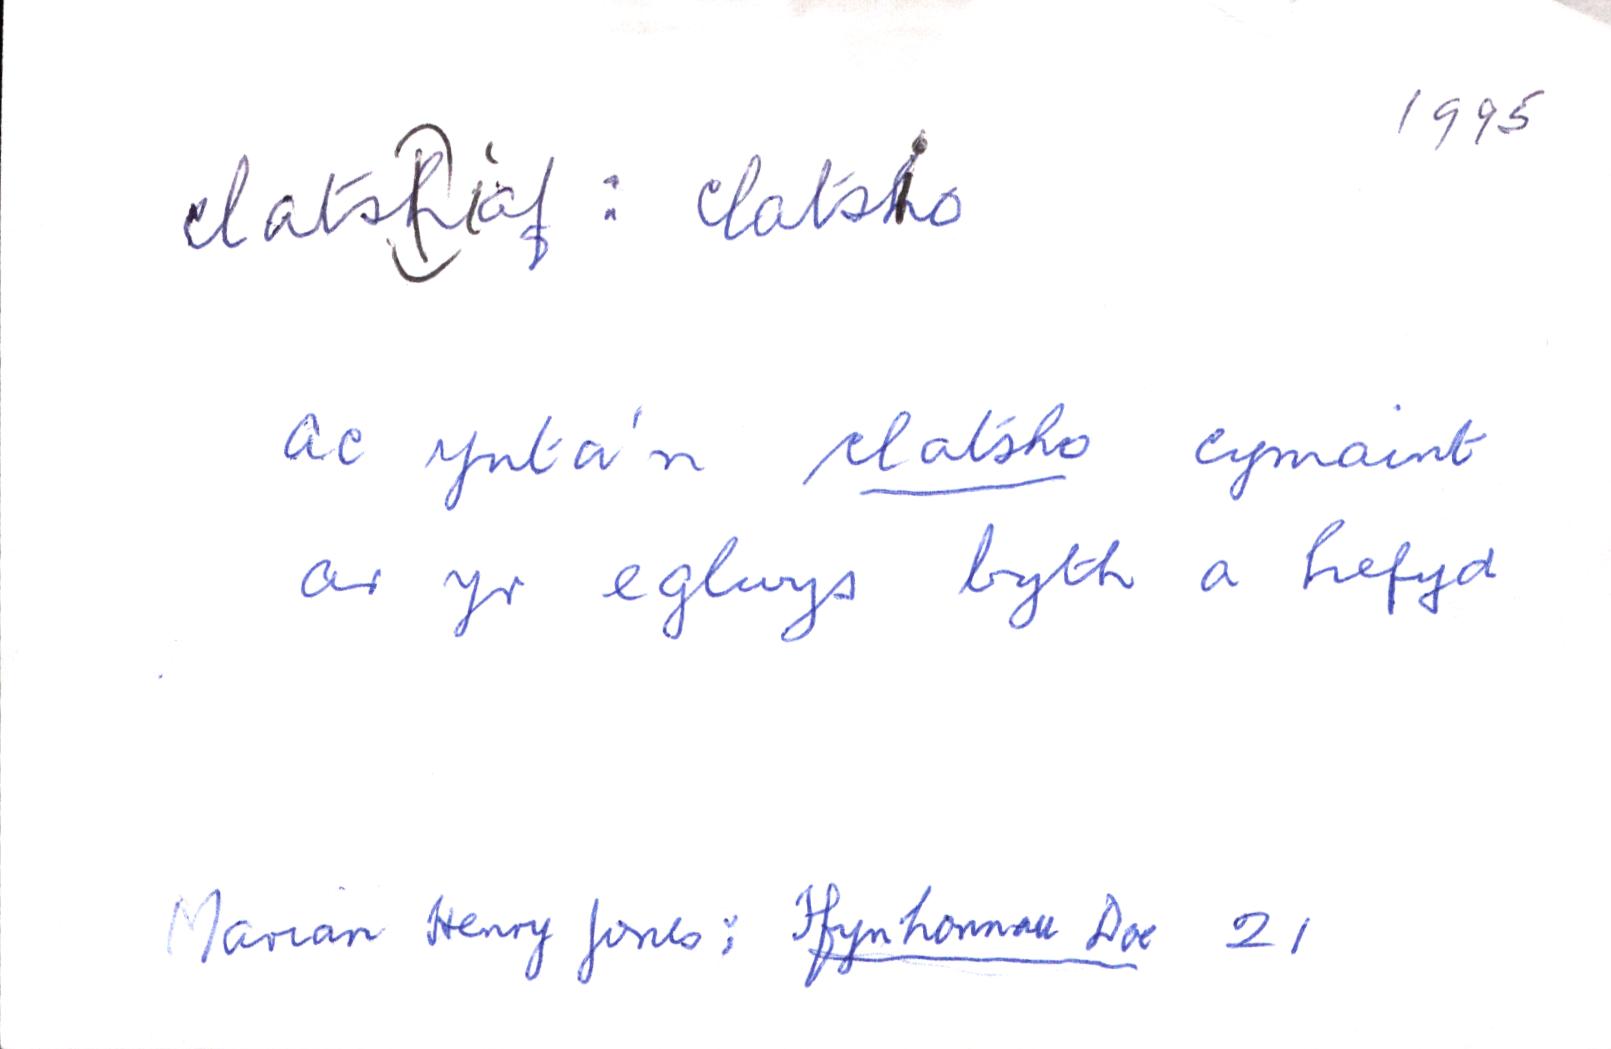 1995
clats(h)iaf : clatsio
ac ynta'n clatsho cymaint
ar yr eglwys byth a hefyd
Marian Henry Jones; Ffynhonnau Doe 21